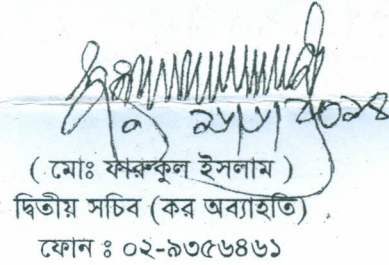 ( মোঃ ফারুকুল ইসলাম )
দ্বিতীয় সচিব (কর অব্যাহতি)
ফোন ঃ ০২-৯৩৫৬৪৬১